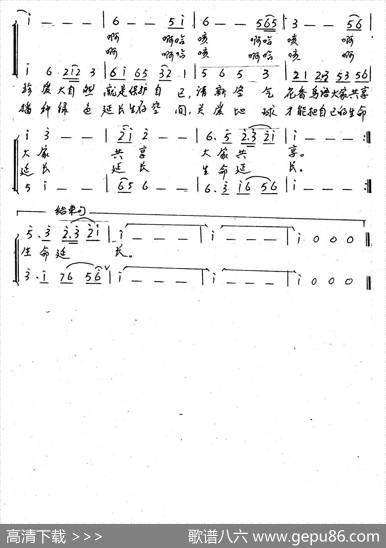 i - - - | 6 - - 5 i | 6 - - 5 6 5 | 3 - - 5 6 |
啊 啊哈 咳 啊哈 咳 啊
啊 啊哈 咳 啊哈 咳 啊
i 6 2 i 2 3 | 6 i 6 5 3 2 1 | 5 6 5 3 | 2 1 2 3 5 3 5 6 |
珍爱大自然 就是保护自己,清新空气 花香鸟语大家共享
播种绿色 延长生存空间,关爱地球 才能把自己的生命
i 3 - - | 2 i 2 - - | 6. 5 2. 3 2 i | i - - -
大家 共享 大家共 享。
延长 延长 生命延 长。
5 i - - | 6 5 6 - - | 6. 3 i 6 5 6 | i - - -
结束句
5. 3 2. 3 2 i | i - - - | i - - - | i 0 0 0
生命延 长。
3. i 7 6 5 6 | i - - - | i - - - | i 0 0 0
高清下载 >>> 歌谱八六 www.gepu86.com